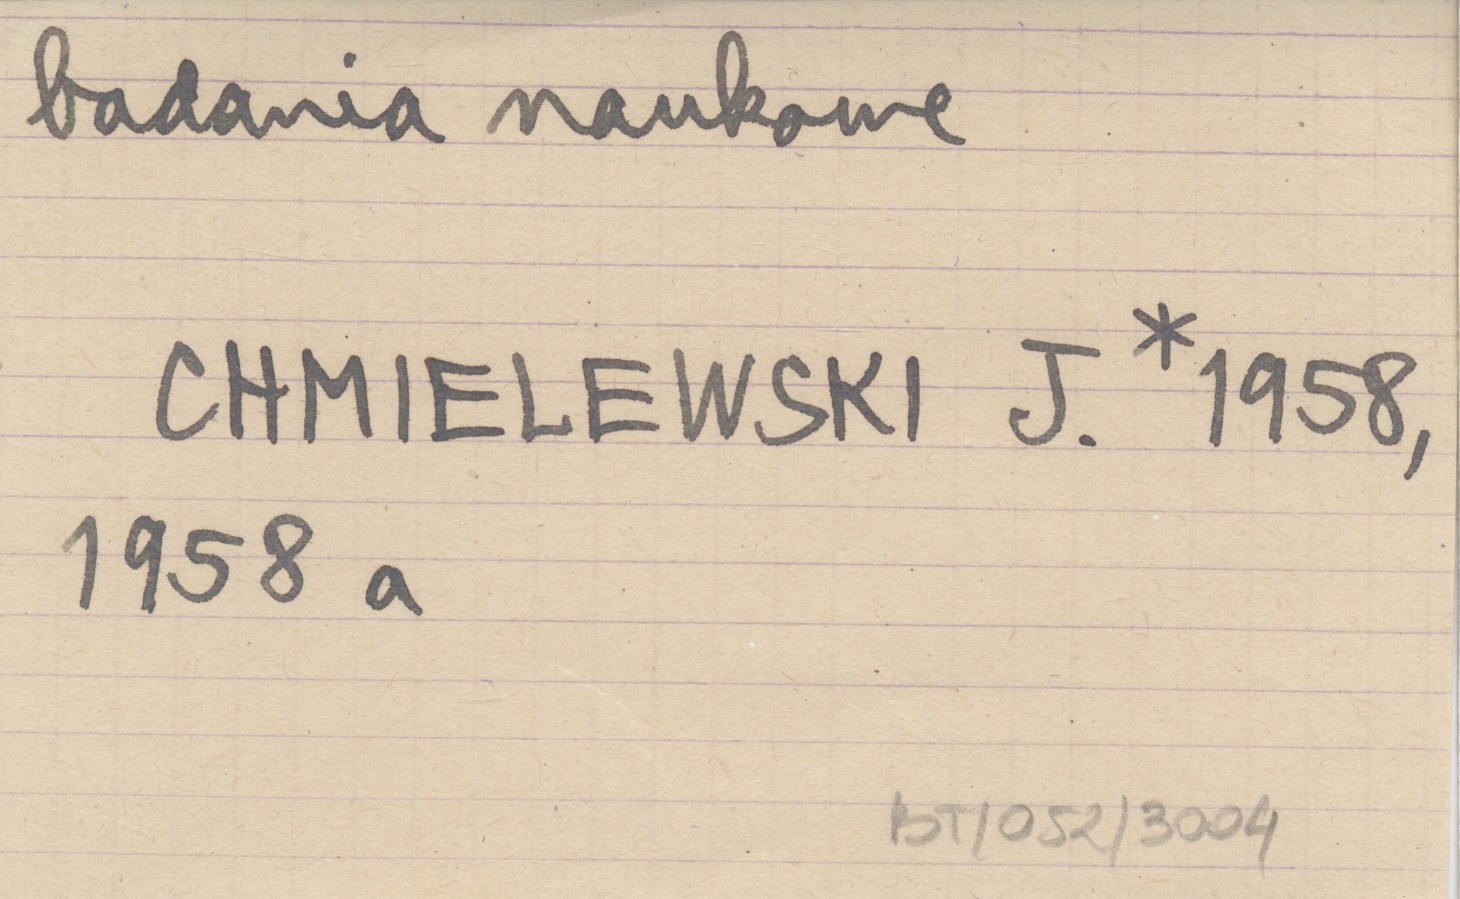 badania naukowe
CHMIELEWSKI J.*1958,
1958 a
BT/052/3004